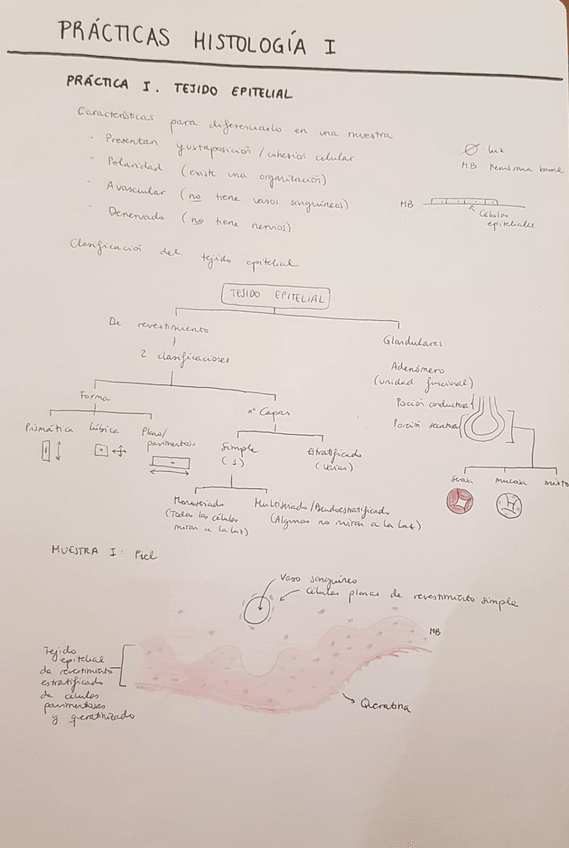 PRÁCTICAS HISTOLOGÍA I
PRÁCTICA I. TEJIDO EPITELIAL
Características para diferenciarlo en una muestra
- Presentan yuxtaposición / cohesión celular
- Polaridad (existe una organización)
- Avascular (no tiene vasos sanguíneos)
- Denervado (no tiene nervios)
luz
MB Membrana basal
MB
Células
epiteliales
Clasificación del tejido epitelial
TEJIDO EPITELIAL
De revestimiento
2 clasificaciones
Glandulares
Adenómero
(unidad funcional)
Porción conductora
Porción secretora
Serosa
Mucosa
mixta
Forma
Prismática
Cúbica
Plana/
pavimentosa
nº Capas
Simple
(1)
Estratificado
(varias)
Monoseriado
(Todas las células
miran a la luz)
Multiseriado/Pseudoestratificado
(Algunas no miran a la luz)
MUESTRA I: Piel
Vaso sanguíneo
Células planas de revestimiento simple
MB
Tejido
epitelial
de revestimiento
estratificado
de células
pavimentosas
y queratinizado
Queratina